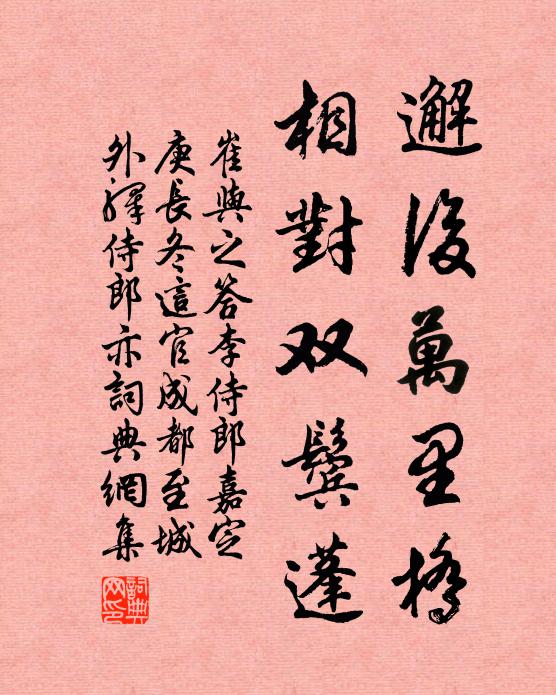 邂後萬里橋
相對双鬢蓬
崔與之答李侍郎嘉定
庚長冬這官成都至城
外驛侍郎亦詞典網集
詞典網印